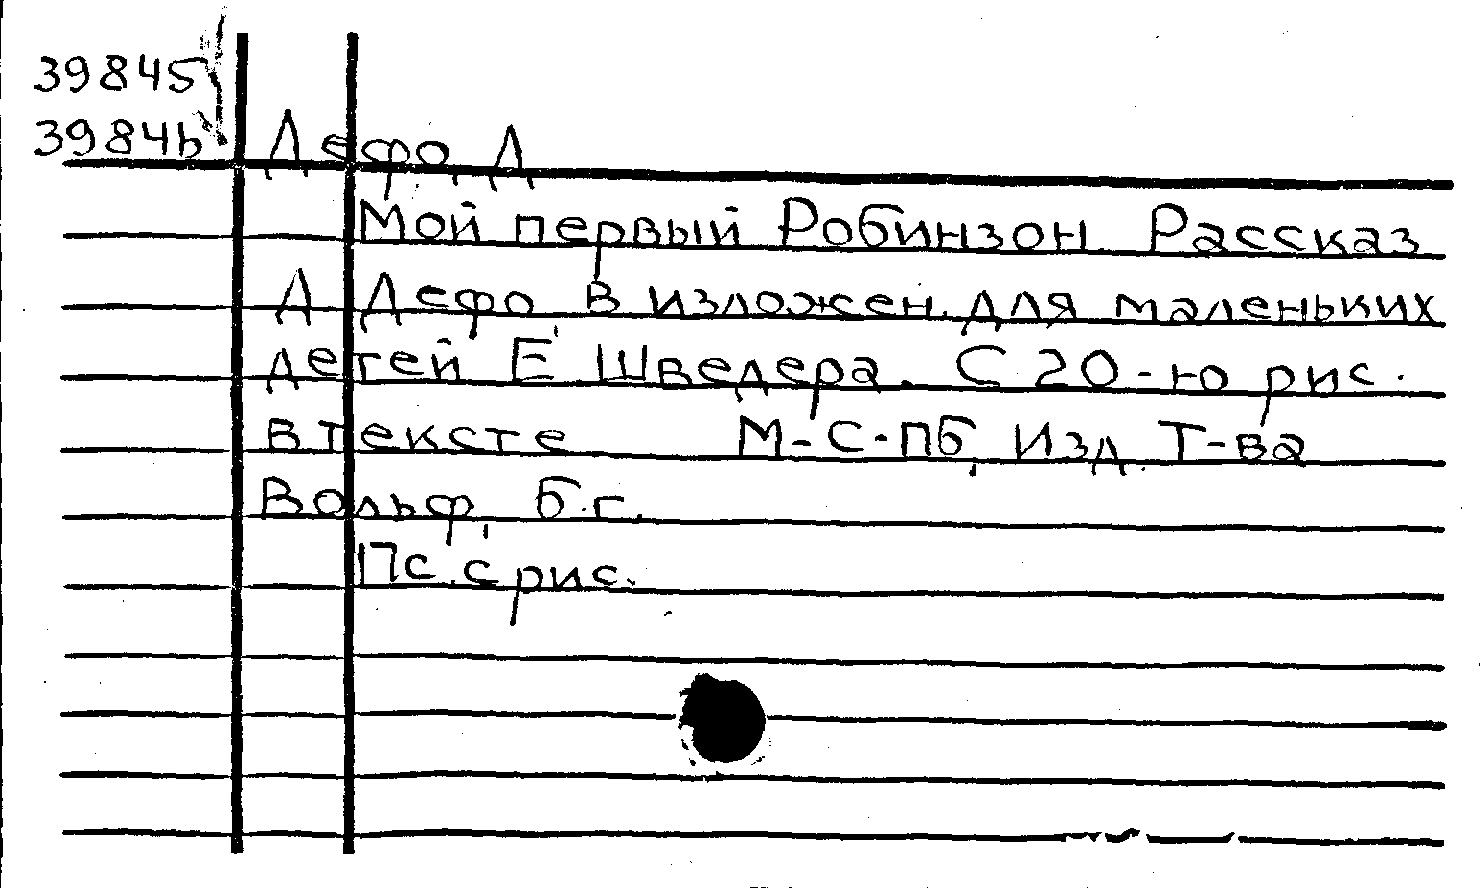 39845
39846 Дефо, Д
Мой первый Робинзон. Рассказ
Д. Дефо в изложен. для маленьких
детей Е. Шведера. С 20-ю рис.
в тексте М.-С.-Пб, Изд. Т-ва
Вольф, б.г.
с. с рис.